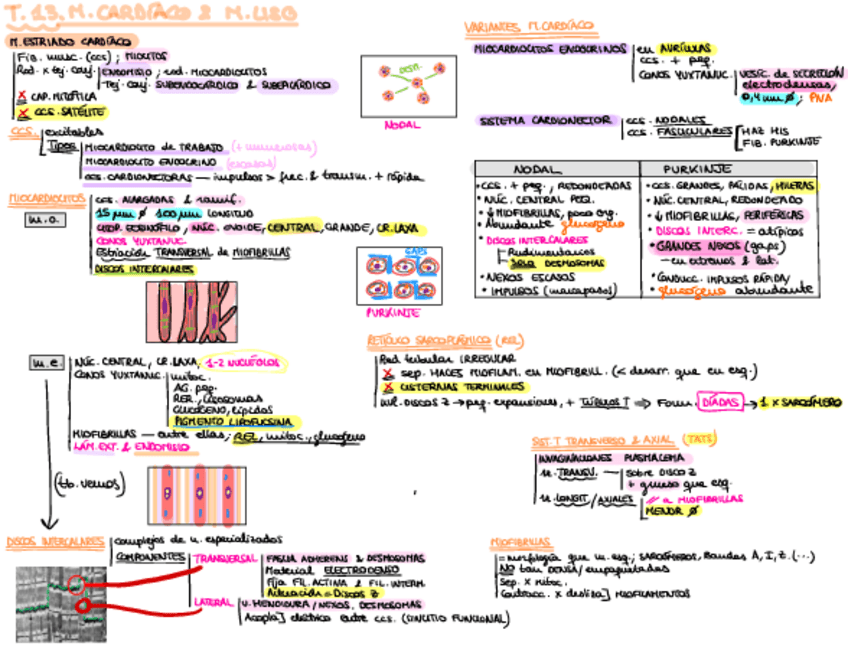 T. 13. M. CARDÍACO & M. LISO
M. ESTRIADO CARDÍACO
Fib. musc. (ccs) ; MIOCITOS
Rod. x tej. conj. ENDOMISIO ; rod. MIOCARDIOCITOS
Tej. conj. SUBENDOCÁRDICO & SUBEPICÁRDICO
X CAP. MITÓTICA
X CCS. SATÉLITE
CCS. excitables
Tipos MIOCARDIOCITO de TRABAJO (+ numerosas)
MIOCARDIOCITO ENDOCRINO (escasos)
CCS. CARDIONECTORAS — impulsos > frec. & transm. + rápida
DESM.
NODAL
MIOCARDIOCITOS
m.o.
CCS. ALARGADAS & ramif.
15 µm Ø 100 µm LONGITUD
CITOP. EOSINÓFILO, NÚC. OVOIDE, CENTRAL, GRANDE, CR. LAXA
CONOS YUXTANUC.
Estriación TRANSVERSAL de MIOFIBRILLAS
DISCOS INTERCALARES
GAPS
PURKINJE
m.e.
NÚC. CENTRAL, CR. LAXA, 1-2 NUCLÉOLOS
CONOS YUXTANUC. mitoc.
AG. peq.
RER, Lisosomas
GLUCÓGENO, Lípidos
PIGMENTO LIPOFUCSINA
MIOFIBRILLAS — entre ellas; REL, mitoc., glucógeno
LÁM. EXT. & ENDOMISIO
(tb. vemos)
DISCOS INTERCALARES
complejos de u. especializados
COMPONENTES TRANSVERSAL FASCIA ADHERENS & DESMOSOMAS
Material ELECTRODENSO
Fija FIL. ACTINA & FIL. INTERM.
Alineación = DISCOS Z
LATERAL U. HENDIDURA/NEXOS, DESMOSOMAS
Acopla] eléctrico entre ccs. (SINCITIO FUNCIONAL)
VARIANTES M. CARDÍACO
MIOCARDIOCITOS ENDOCRINOS en AURÍCULAS
CCS. + peq.
CONOS YUXTANUC. VESÍC. de SECRECIÓN
electrodensas,
0,4 µm Ø ; PNA
SISTEMA CARDIONECTOR CCS. NODALES
CCS. FASCICULARES HAZ HIS
FIB. PURKINJE
NODAL
• CCS. + peq., REDONDEADAS
• NÚC. CENTRAL PEQ.
• ↓ MIOFIBRILLAS, poco org.
• Abundante glucógeno
• DISCOS INTERCALARES
Rudimentarios
Solo DESMOSOMAS
• NEXOS ESCASOS
• IMPULSOS (marcapasos)
PURKINJE
• CCS. GRANDES, PÁLIDAS, HILERAS
• NÚC. CENTRAL, REDONDEADO
• ↓ MIOFIBRILLAS, PERIFÉRICAS
• DISCOS INTERC. = atípicos
• GRANDES NEXOS (gaps)
— en extremos & lat.
• CONDUCC. IMPULSOS RÁPIDA/
• glucógeno abundante
RETÍCULO SARCOPLÁSMICO (REL)
Red tubular IRREGULAR
X sep. HACES MIOFILAM. en MIOFIBRILL. (< desarr. que en esq.)
X CISTERNAS TERMINALES
DISCOS Z → peq. expansiones, + TÚBULOS T ⇒ Form. DÍADAS → 1 x SARCÓMERO
SIST. T TRANSVERSO & AXIAL (TATS)
INVAGINACIONES PLASMALEMA
TRANSV. — sobre DISCO Z
+ grueso que esq.
LONGIT./AXIALES // a MIOFIBRILLAS
MENOR Ø
MIOFIBRILLAS
= morfología que m. esq.; SARCÓMEROS, Bandas A, I, Z. (...)
NO tan DENSA/empaquetadas
Sep. x mitoc.
Contracc. x desliza] MIOFILAMENTOS